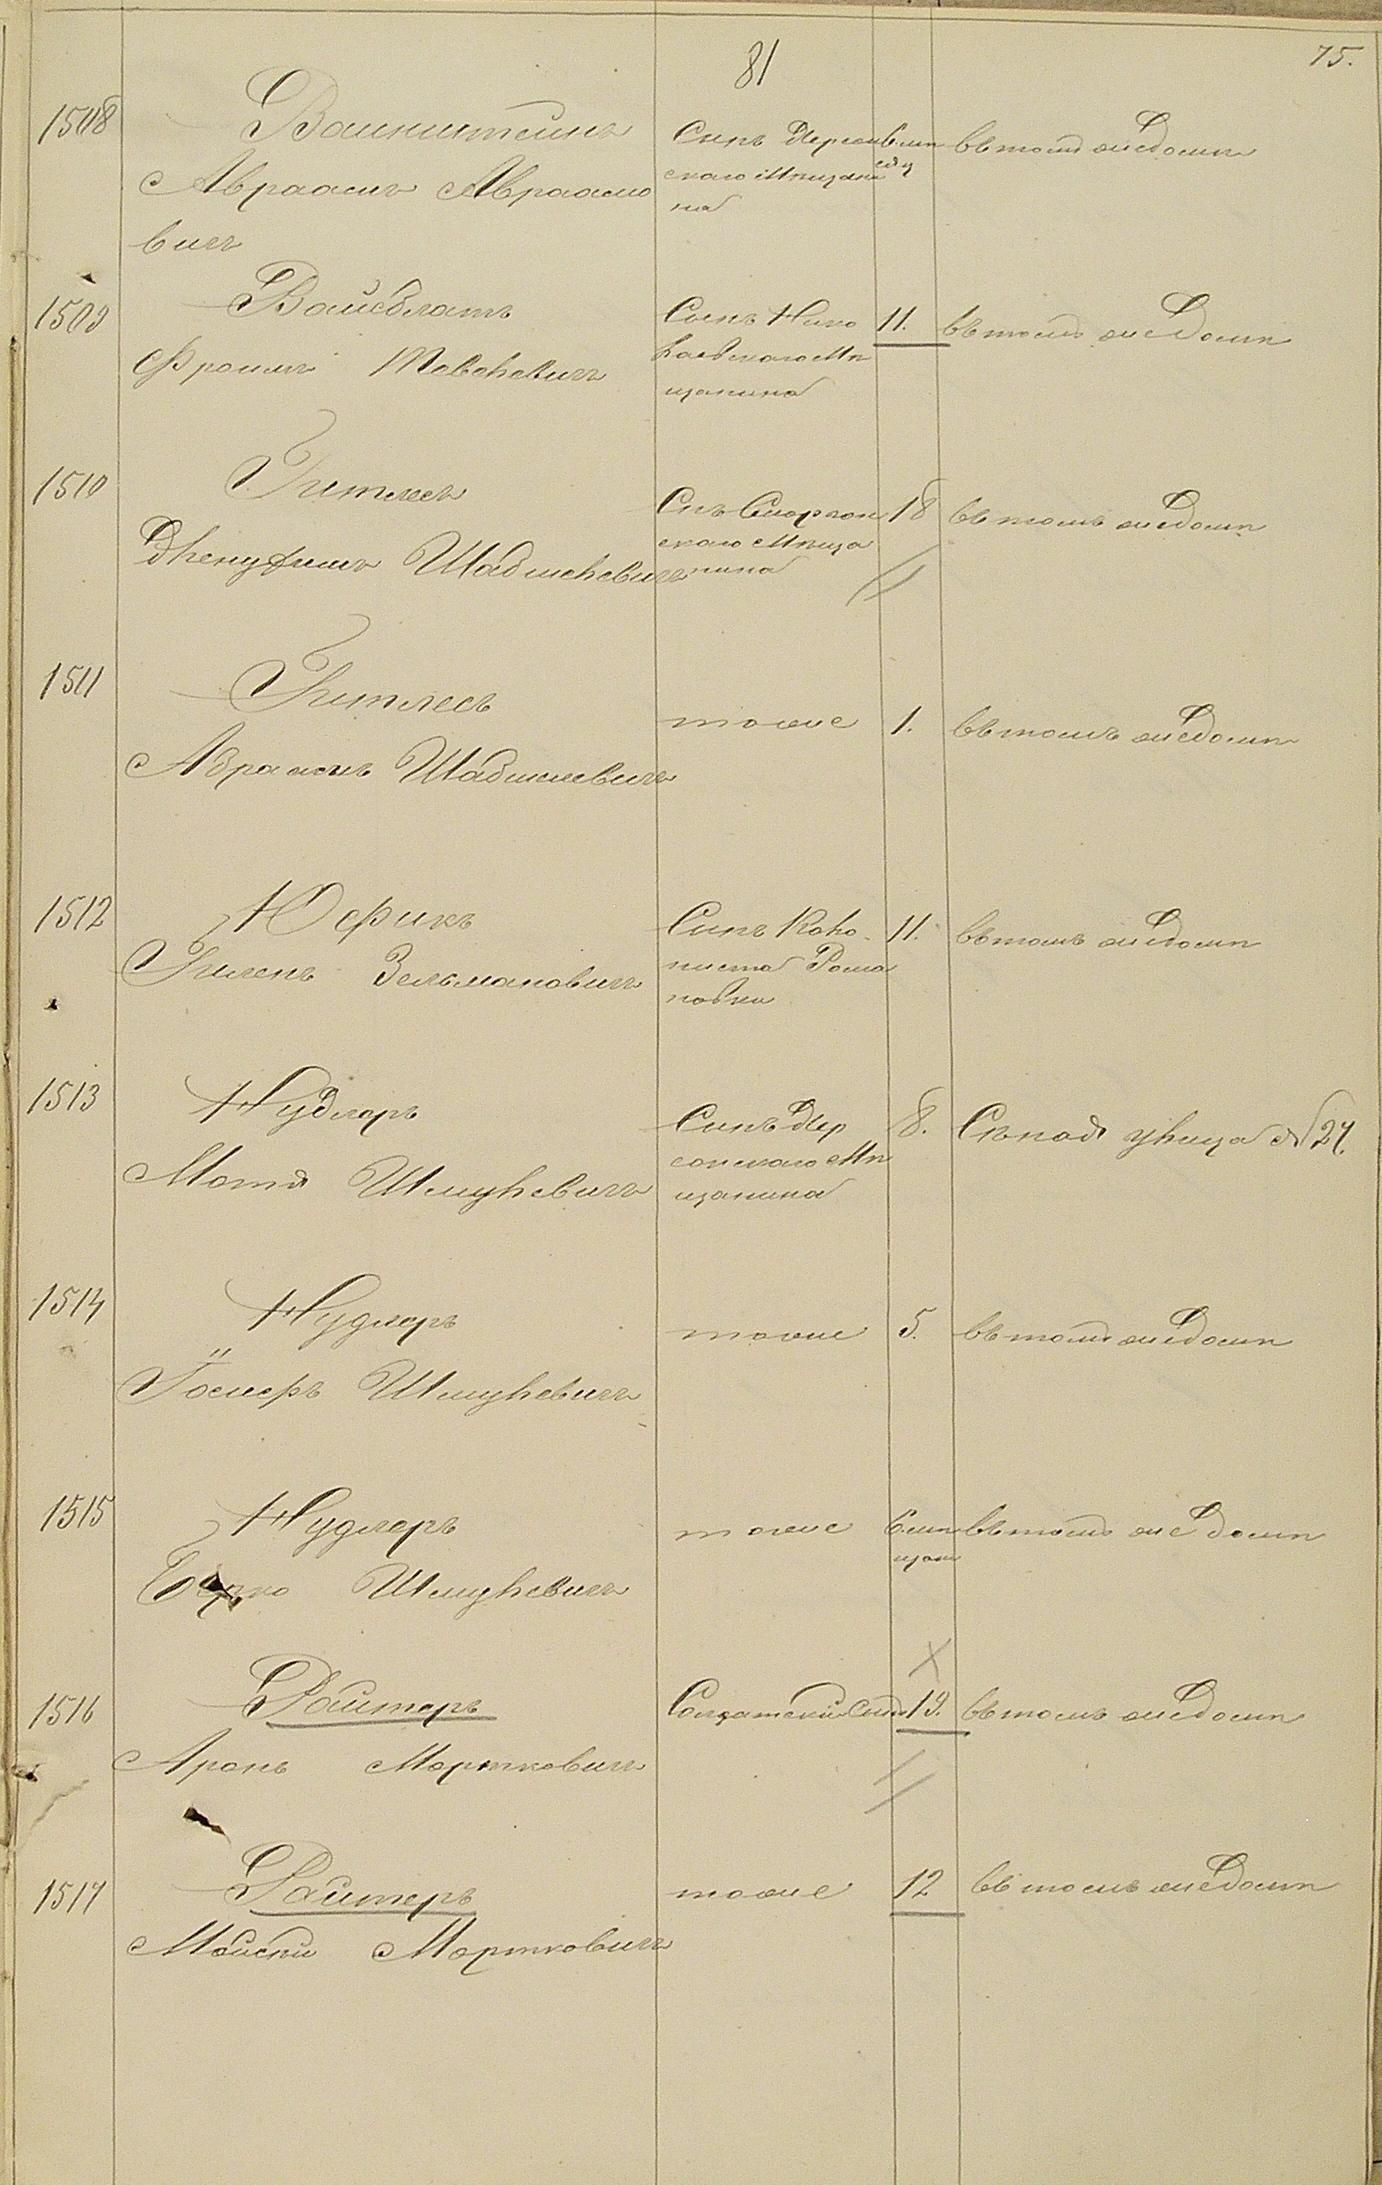 81
75.
1508
Ваинштеинъ
Авраамъ Авраамо
вичъ
Сынъ Херсон
скаго Мѣщани
на
въ томъ же домѣ
1509
Вайсблатъ
Фроимъ Тевелевичъ
Сынъ Нико
лаевскаго Мѣ
щанина
11.
въ томъ же домѣ
1510
Гитлесъ
Шабшелевичъ
Снъ Сморгон
скаго Мѣща
нина
18
въ томъ же домѣ
1511
Гитлесъ
Авраамъ Шабшелевичъ
тоже
1.
въ томъ же домѣ
1512
Юфикъ
Гилель Зельмановичъ
Сынъ Коло
ниста Рома
новки
11.
въ томъ же домѣ
1513
Нудлеръ
Мотя Шмулевичъ
Сынъ Хер
сонскаго Мѣ
щанина
8.
Сѣная улица № 27.
1514
Нудлеръ
Шмулевичъ
тоже
5.
въ томъ же домѣ
1515
Нудлеръ
Шмулевичъ
тоже
6 мѣ
сяц
въ томъ же домѣ
1516
Райтеръ
Аронъ Мортковичъ
Солдатскій Сынъ
19.
въ томъ же домѣ
1517
Райтеръ
Мойсей Мортковичъ
тоже
12
въ томъ же домѣ